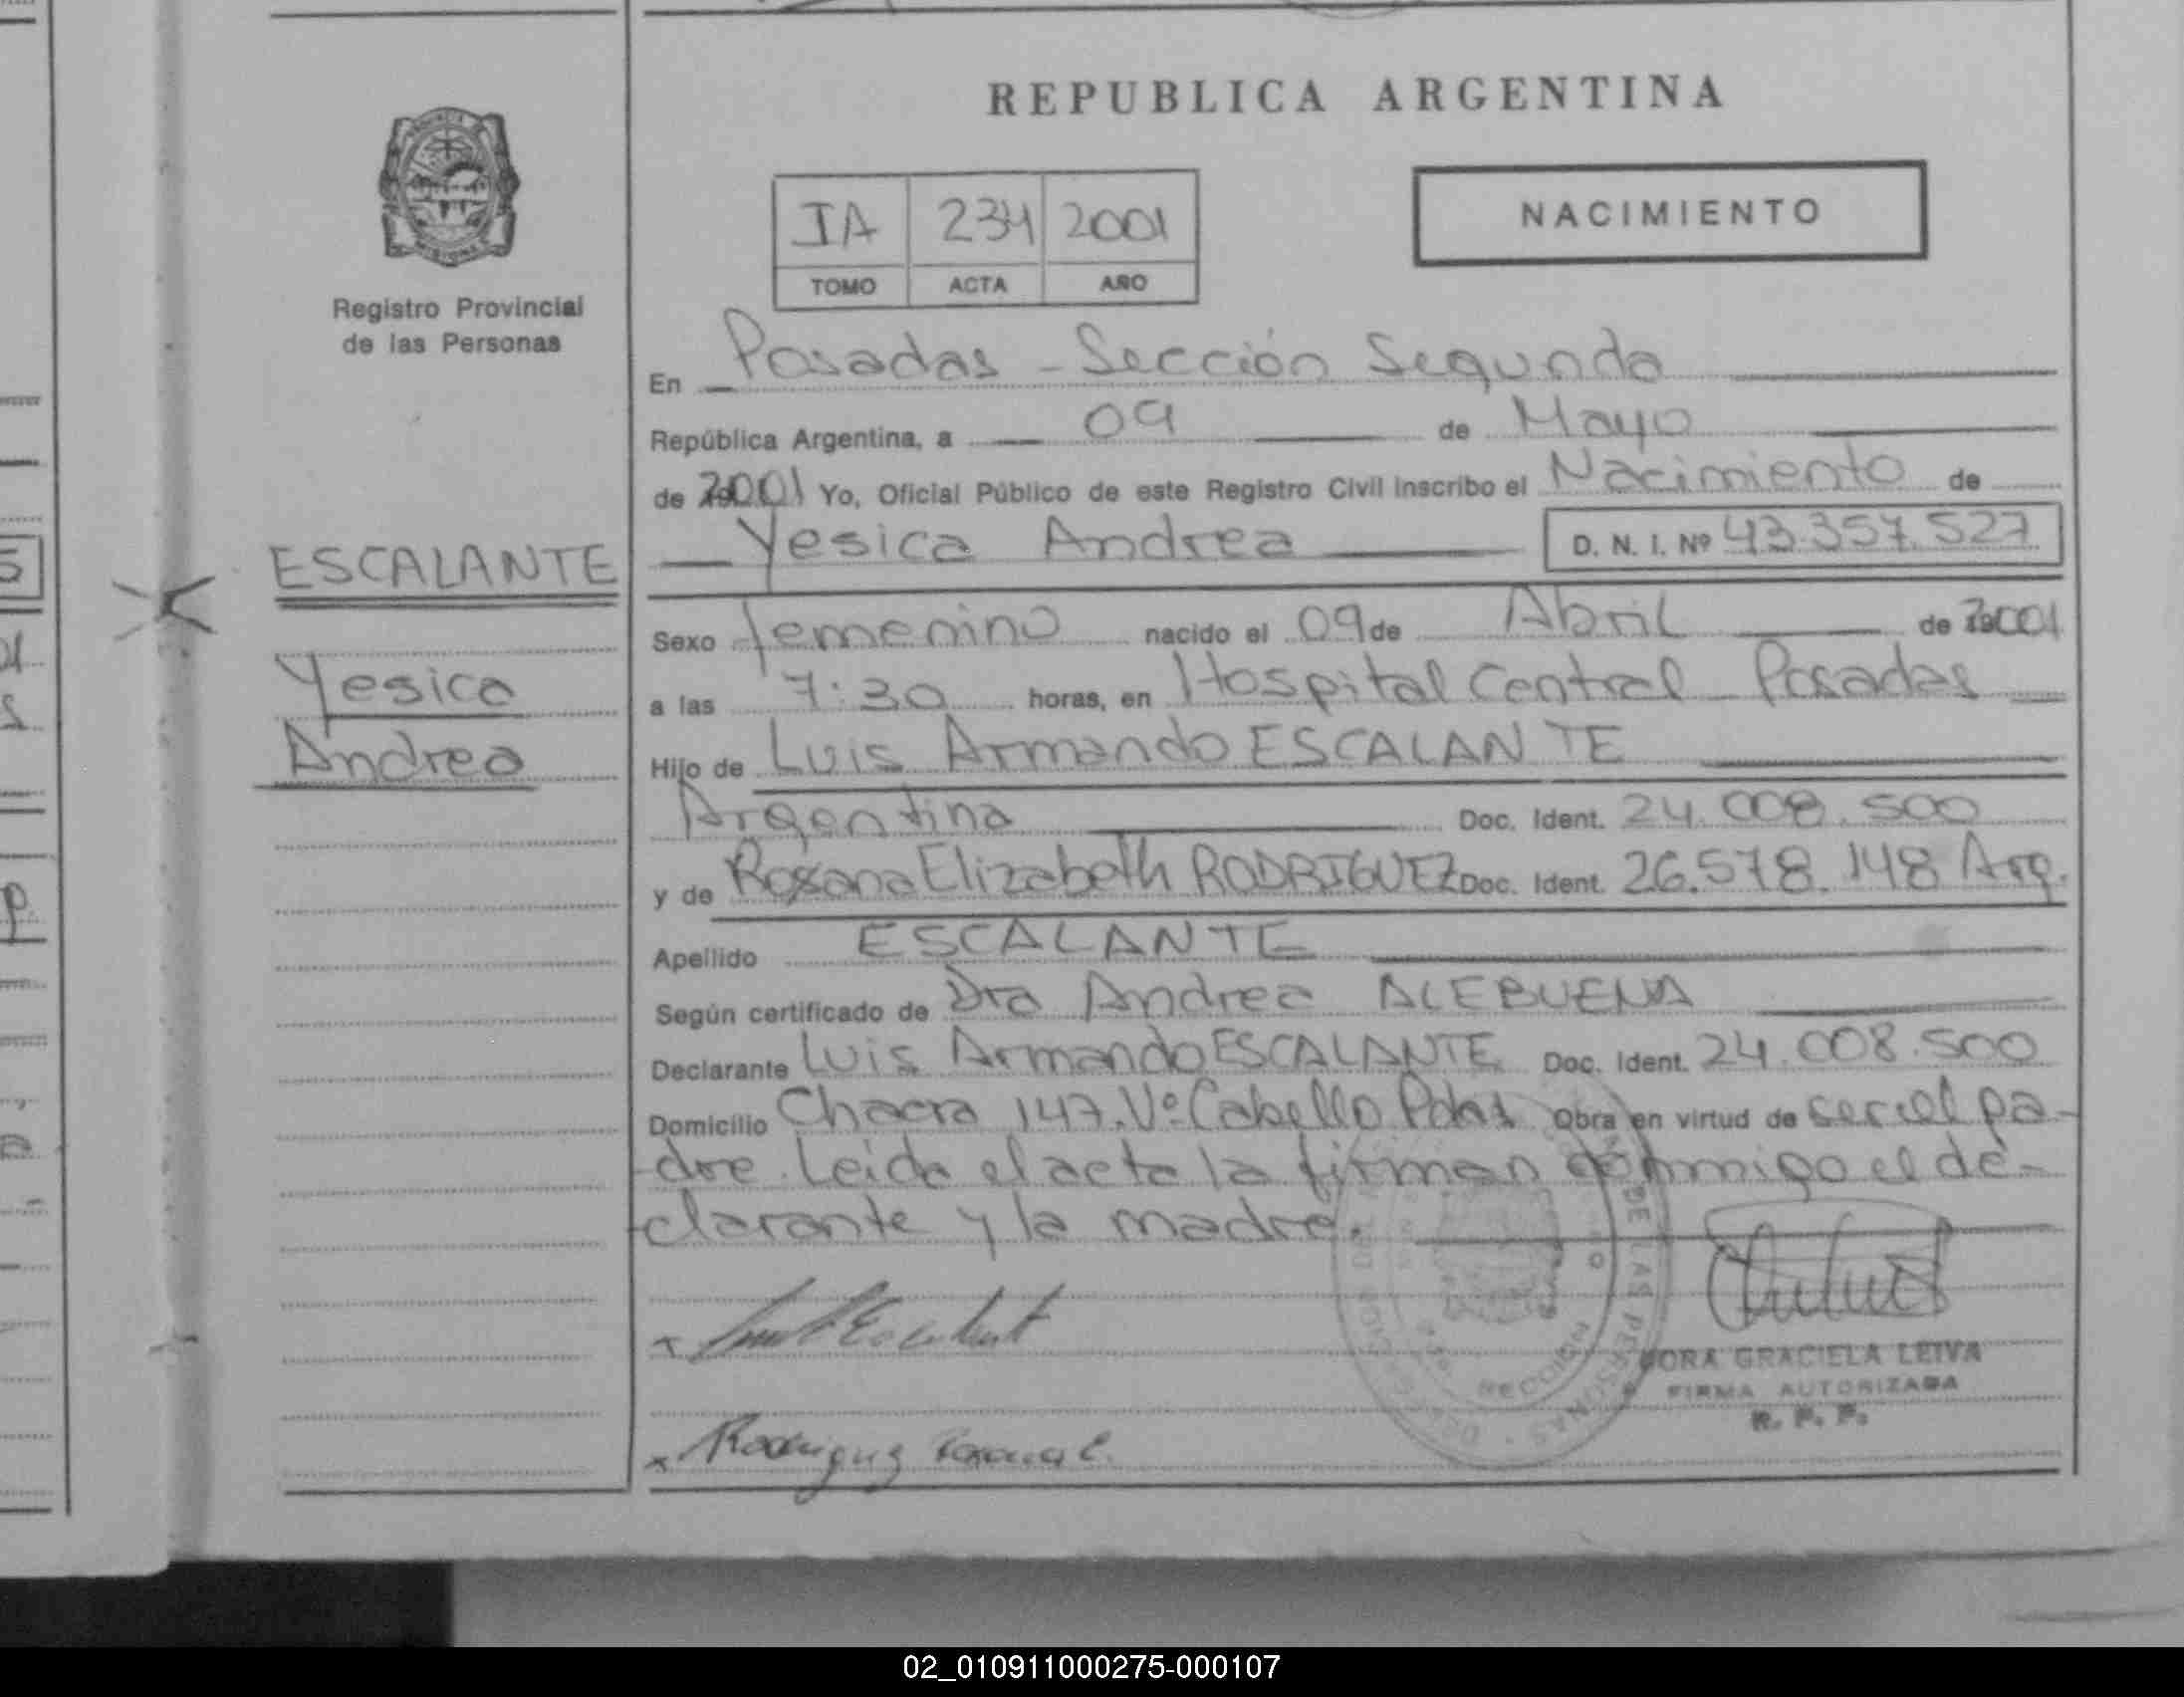 REPUBLICA ARGENTINA
Registro Provincial
de las Personas
IA 234 2001
TOMO ACTA AÑO
NACIMIENTO
En Posadas - Sección Segunda
República Argentina, a 09 de Mayo
de 2001 Yo, Oficial Público de este Registro Civil inscribo el Nacimiento de
Yesica Andrea D. N. I. Nº 43.357.527
ESCALANTE
Yesica
Andrea
Sexo femenino nacido el 09 de Abril de 2001
a las 7:30 horas, en Hospital Central Posadas
Hijo de Luis Armando ESCALANTE
Argentina Doc. Ident. 24.008.500
y de Rosana Elizabeth RODRIGUEZ Doc. Ident. 26.578.148 Arg.
Apellido ESCALANTE
Según certificado de Dra Andrea ALEBUENA
Declarante Luis Armando ESCALANTE Doc. Ident. 24.008.500
Domicilio Chacra 147. Vº Cabello Pdas Obra en virtud de ser el pa-
dre. Leida el acta la firman conmigo el de-
clarante y la madre.
DE LAS PERSONAS
DORA GRACIELA LEIVA
FIRMA AUTORIZADA
R. P. P.
x Rodriguez Rosana E.
02_010911000275-000107